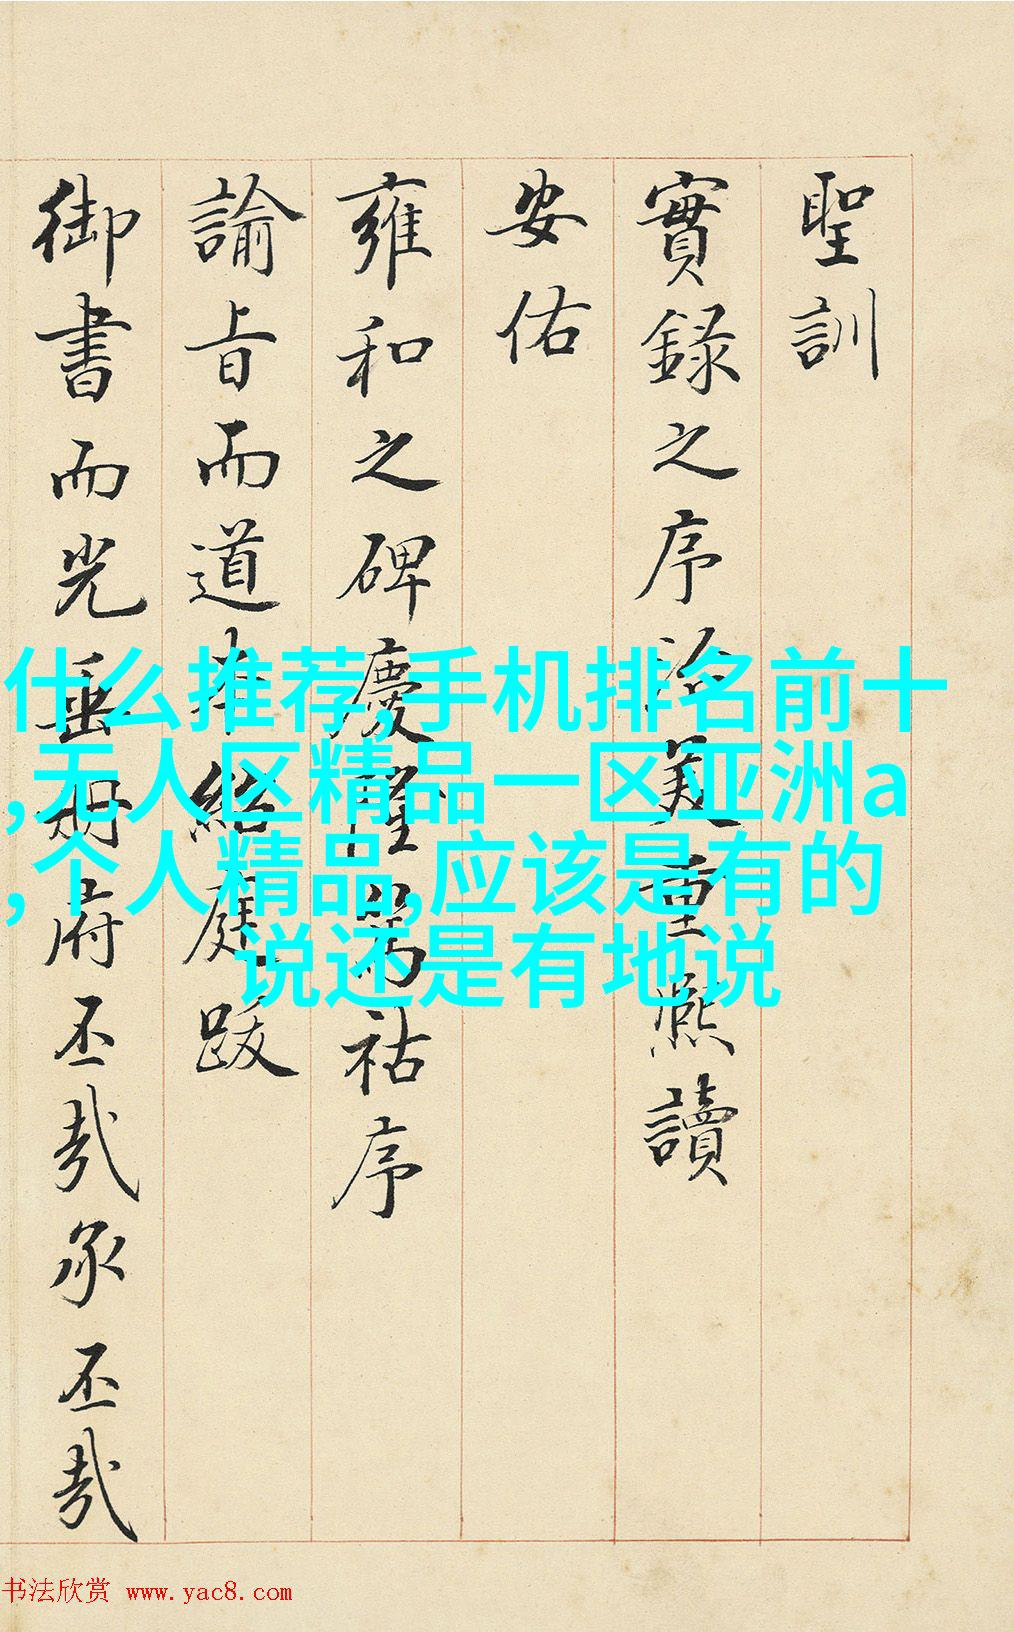 聖訓
實錄之序治美重熙讀
安佑
雍和之碑慶隆篤祜序
諭旨而道本紹庭跋
御書而光垂冊府丕哉承丕哉
什么推荐,手机排名前十
,无人区精品一区亚洲a
,个人精品,应该是有的
说还是有地说
书法欣赏 www.yac8.com